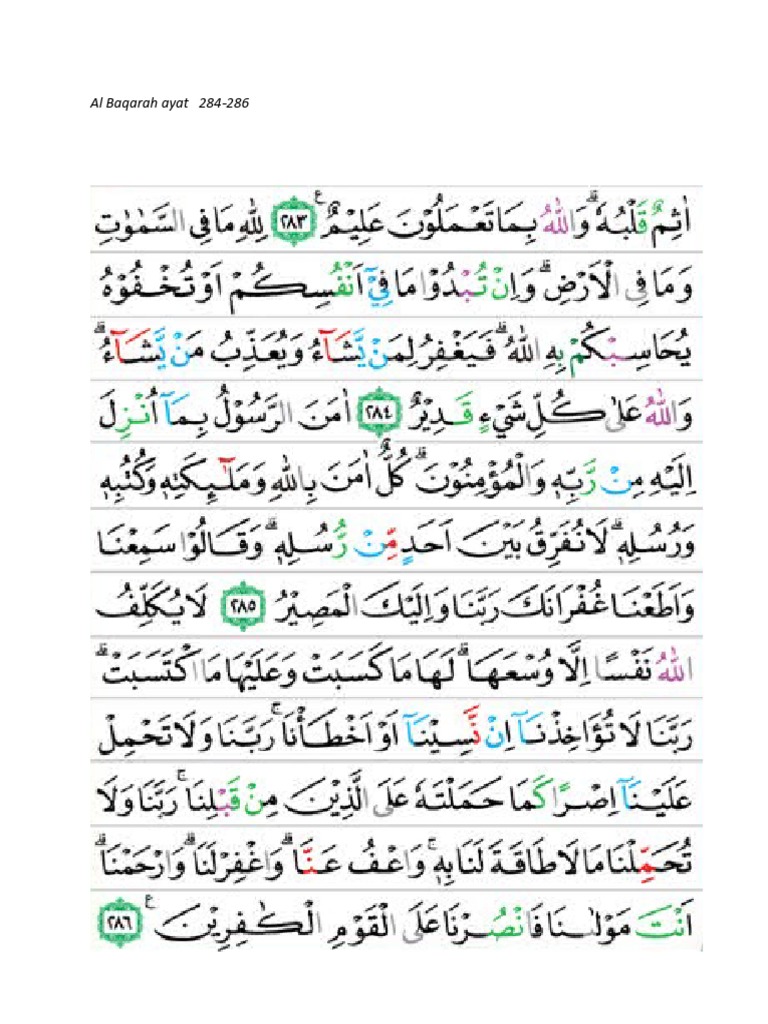 Al Baqarah ayat 284-286
اٰثِمٌ قَلْبُهٗ ۗ وَاللّٰهُ بِمَا تَعْمَلُوْنَ عَلِيْمٌ ࣖ ٢٨٣ لِلّٰهِ مَا فِى السَّمٰوٰتِ
وَمَا فِى الْاَرْضِ ۗ وَاِنْ تُبْدُوْا مَا فِيْٓ اَنْفُسِكُمْ اَوْ تُخْفُوْهُ
يُحَاسِبْكُمْ بِهِ اللّٰهُ ۗ فَيَغْفِرُ لِمَنْ يَّشَاۤءُ وَيُعَذِّبُ مَنْ يَّشَاۤءُ ۗ
وَاللّٰهُ عَلٰى كُلِّ شَيْءٍ قَدِيْرٌ ٢٨٤ اٰمَنَ الرَّسُوْلُ بِمَآ اُنْزِلَ
اِلَيْهِ مِنْ رَّبِّهٖ وَالْمُؤْمِنُوْنَ ۗ كُلٌّ اٰمَنَ بِاللّٰهِ وَمَلٰۤىِٕكَتِهٖ وَكُتُبِهٖ
وَرُسُلِهٖ ۗ لَا نُفَرِّقُ بَيْنَ اَحَدٍ مِّنْ رُّسُلِهٖ ۗ وَقَالُوْا سَمِعْنَا
وَاَطَعْنَا غُفْرَانَكَ رَبَّنَا وَاِلَيْكَ الْمَصِيْرُ ٢٨٥ لَا يُكَلِّفُ
اللّٰهُ نَفْسًا اِلَّا وُسْعَهَا ۗ لَهَا مَا كَسَبَتْ وَعَلَيْهَا مَا اكْتَسَبَتْ ۗ
رَبَّنَا لَا تُؤَاخِذْنَآ اِنْ نَّسِيْنَآ اَوْ اَخْطَأْنَا ۚ رَبَّنَا وَلَا تَحْمِلْ
عَلَيْنَآ اِصْرًا كَمَا حَمَلْتَهٗ عَلَى الَّذِيْنَ مِنْ قَبْلِنَا ۚ رَبَّنَا وَلَا
تُحَمِّلْنَا مَا لَا طَاقَةَ لَنَا بِهٖ ۚ وَاعْفُ عَنَّا ۗ وَاغْفِرْ لَنَا ۗ وَارْحَمْنَا ۗ
اَنْتَ مَوْلٰىنَا فَانْصُرْنَا عَلَى الْقَوْمِ الْكٰفِرِيْنَ ࣖ ٢٨٦